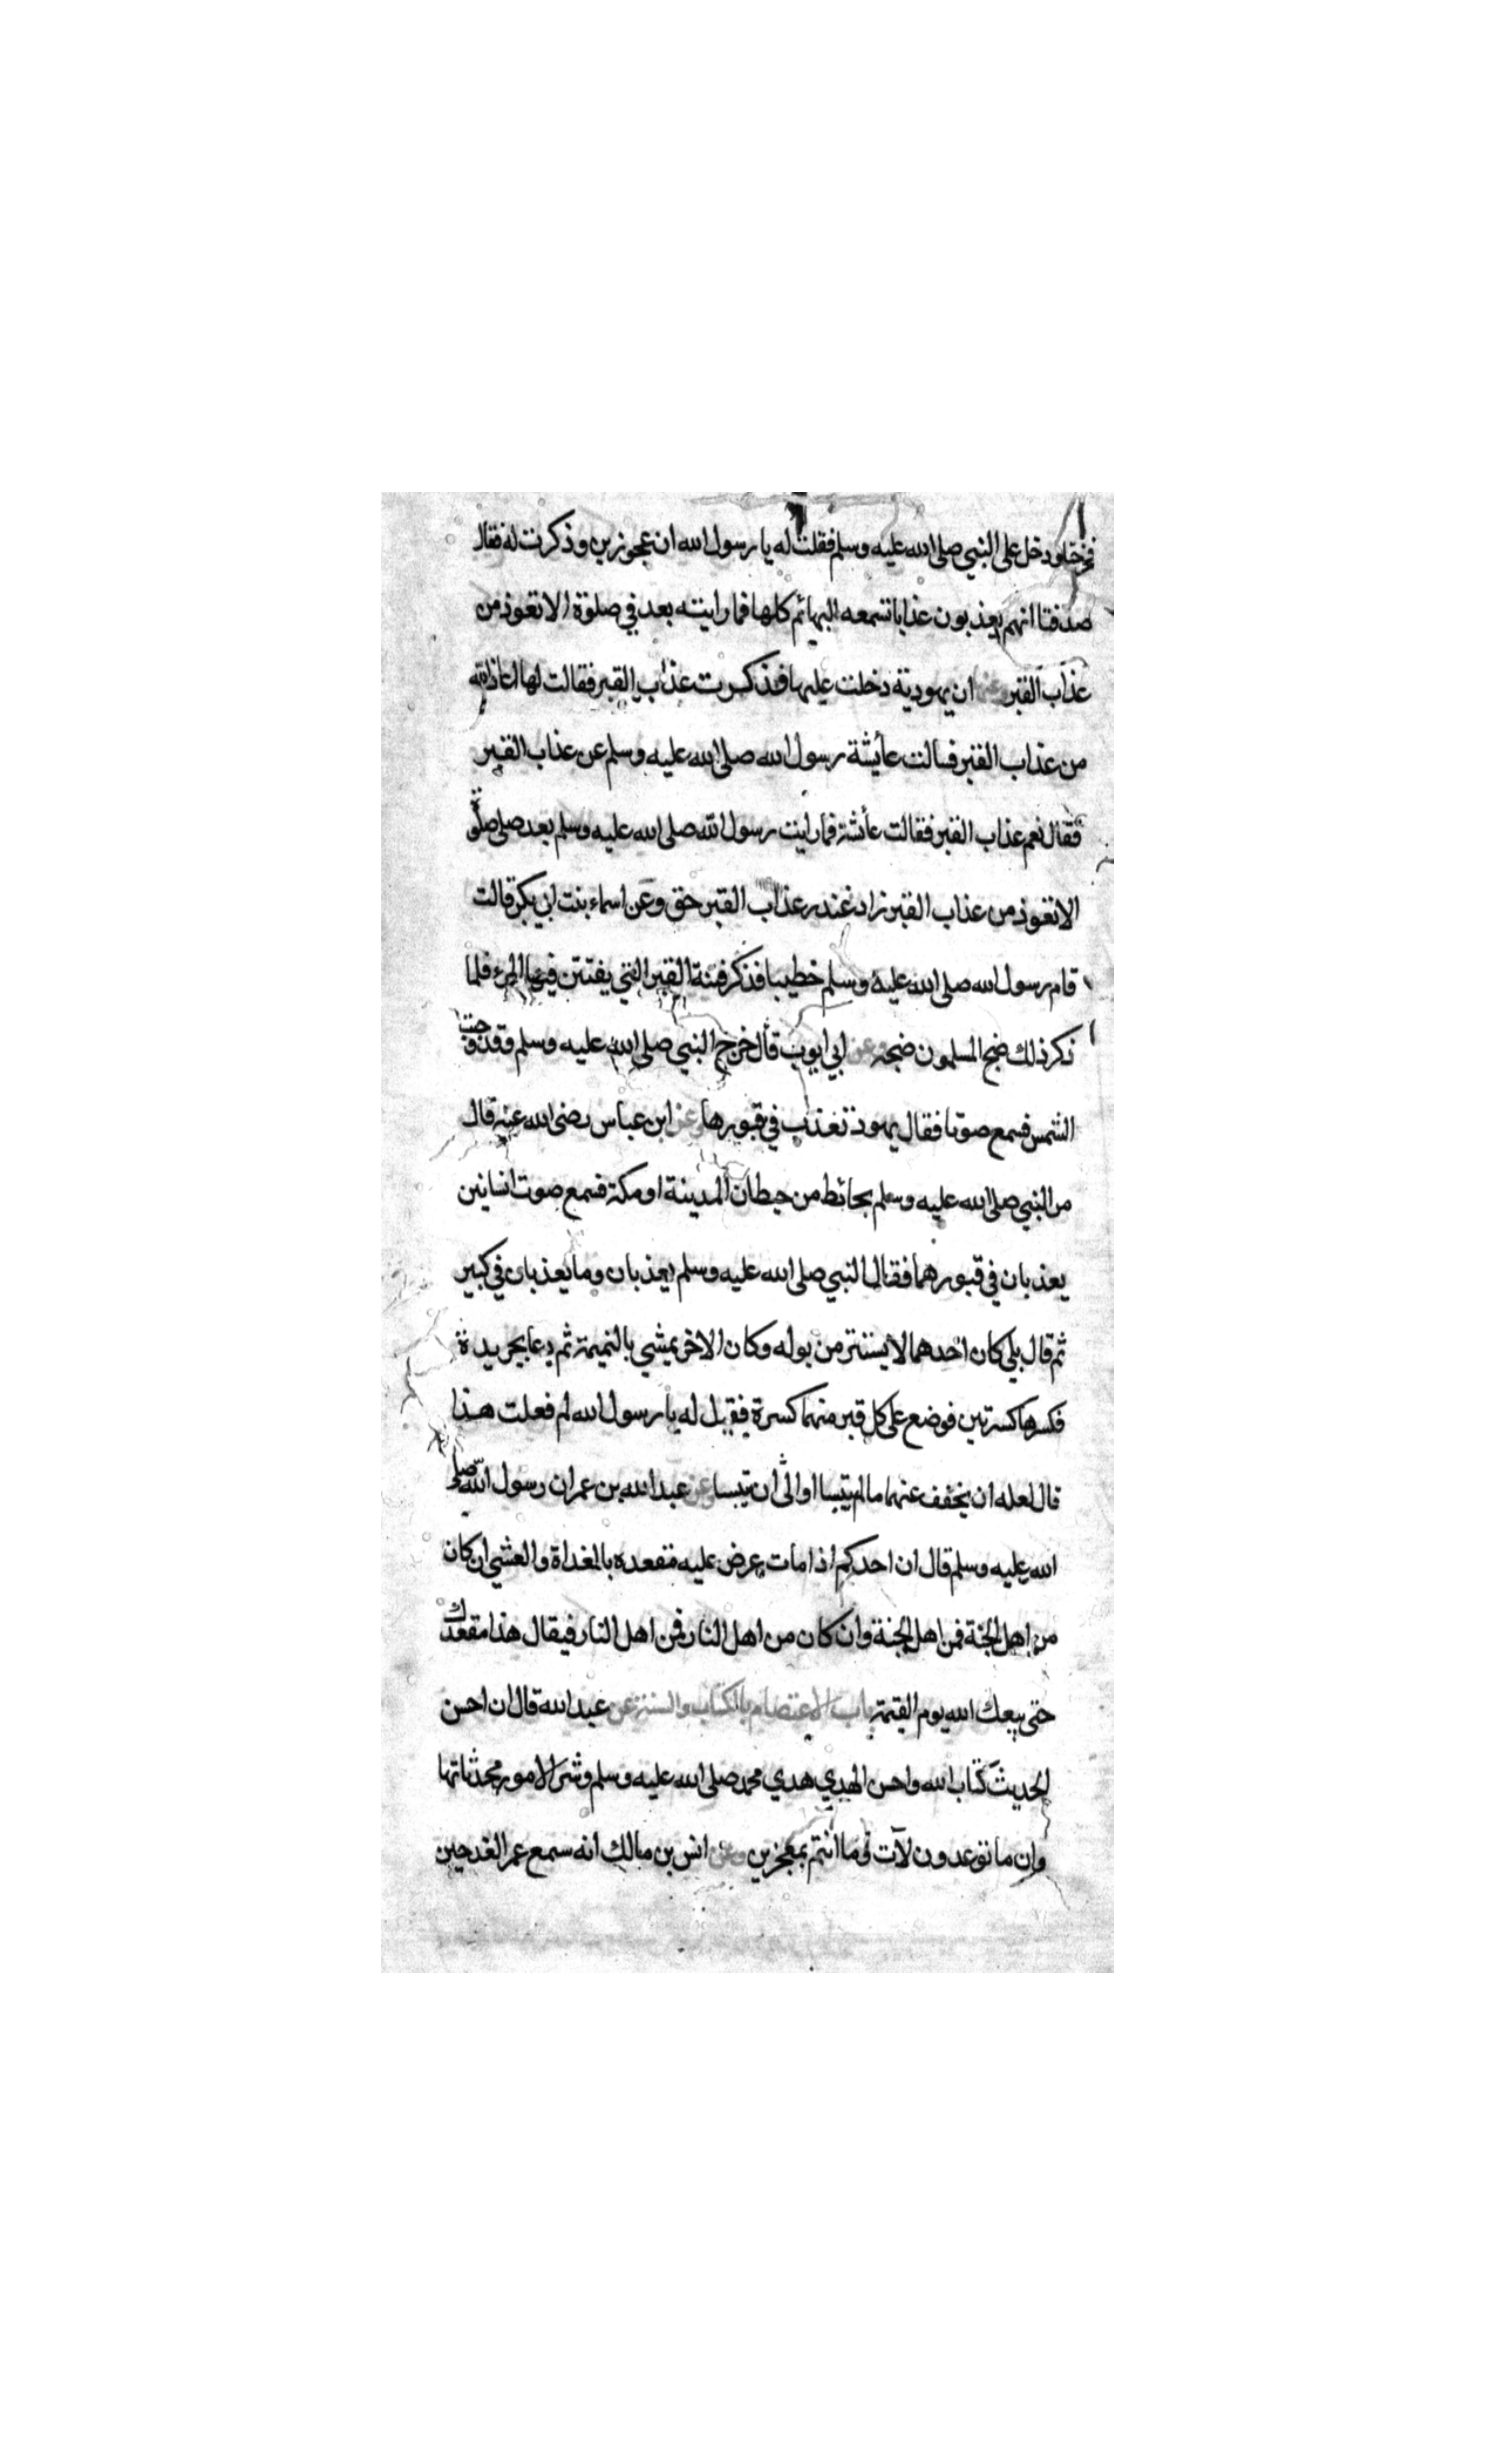 فخرجتا ودخل على النبي صلى الله عليه وسلم فقلت له يا رسول الله ان عجوزين وذكرت له فقال
صدقتا انهم يعذبون عذابا تسمعه البهائم كلها فما رايته بعد في صلوة الا تعوذ من
عذاب القبر وعنها ان يهودية دخلت عليها فذكرت عذاب القبر فقالت لها اعاذك الله
من عذاب القبر فسالت عايشة رسول الله صلى الله عليه وسلم عن عذاب القبر
فقال نعم عذاب القبر فقالت عائشة فما رايت رسول الله صلى الله عليه وسلم بعد صلى صلوة
الا تعوذ من عذاب القبر زاد غندر عذاب القبر حق وعن اسماء بنت ابي بكر قالت
قام رسول الله صلى الله عليه وسلم خطيبا فذكر فتنة القبر التي يفتتن فيها المرء فلما
ذكر ذلك ضج المسلمون ضجة وعن ابي ايوب قال خرج النبي صلى الله عليه وسلم وقد وجبت
الشمس فسمع صوتا فقال يهود تعذب في قبورها وعن ابن عباس رضى الله عنه قال
مر النبي صلى الله عليه وسلم بحائط من حيطان المدينة او مكة فسمع صوت انسانين
يعذبان في قبورهما فقال النبي صلى الله عليه وسلم يعذبان وما يعذبان في كبير
ثم قال بلى كان احدهما لا يستتر من بوله وكان الاخر يمشي بالنميمة ثم دعا بجريدة
فكسرها كسرتين فوضع على كل قبر منهما كسرة فقيل له يا رسول الله لم فعلت هذا
قال لعله ان يخفف عنهما ما لم تيبسا او الى ان تيبسا وعن عبد الله بن عمر ان رسول الله صلى
الله عليه وسلم قال ان احدكم اذا مات عرض عليه مقعده بالغداة والعشي ان كان
من اهل الجنة فمن اهل الجنة وان كان من اهل النار فمن اهل النار فيقال هذا مقعدك
حتى يبعثك الله يوم القيمة باب الاعتصام بالكتاب والسنة عن عبد الله قال ان احسن
الحديث كتاب الله واحسن الهدي هدي محمد صلى الله عليه وسلم وشر الامور محدثاتها
وان ما توعدون لآت وما انتم بمعجزين وعن انس بن مالك انه سمع عمر الغد حين